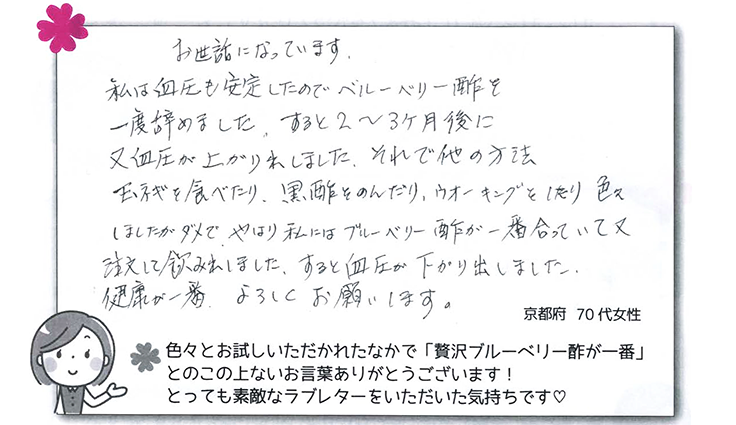 お世話になっています.
私は血圧も安定したのでベルーベリー酢を
一度辞めました。すると2〜3ケ月後に
又血圧が上がり出しました. それで他の方法
玉ネギを食べたり、黒酢をのんだり、ウオーキングをしたり 色々
しましたがダメで、やはり私にはブルーベリー酢が一番合っていて又
注文して飲み出しました、すると血圧が下がり出しました.
健康が一番. よろしくお願いします。
京都府 70代女性
色々とお試しいただかれたなかで「贅沢ブルーベリー酢が一番」
とのこの上ないお言葉ありがとうございます！
とっても素敵なラブレターをいただいた気持ちです♡